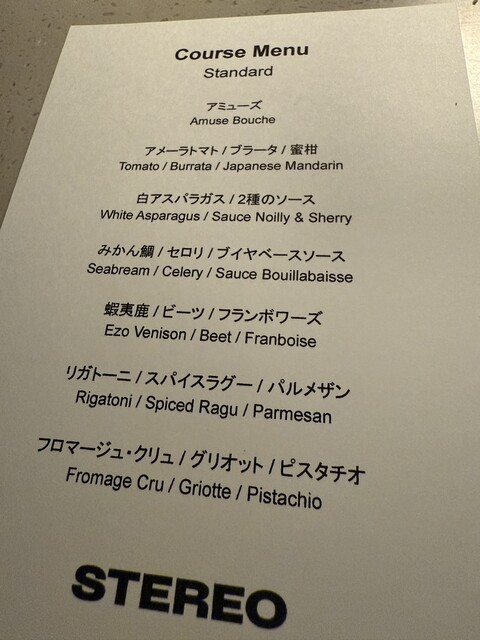 Course Menu
Standard
アミューズ
Amuse Bouche
アメーラトマト / ブラータ / 蜜柑
Tomato / Burrata / Japanese Mandarin
白アスパラガス / 2種のソース
White Asparagus / Sauce Noilly & Sherry
みかん鯛 / セロリ / ブイヤベースソース
Seabream / Celery / Sauce Bouillabaisse
蝦夷鹿 / ビーツ / フランボワーズ
Ezo Venison / Beet / Franboise
リガトーニ / スパイスラグー / パルメザン
Rigatoni / Spiced Ragu / Parmesan
フロマージュ・クリュ / グリオット / ピスタチオ
Fromage Cru / Griotte / Pistachio
STEREO